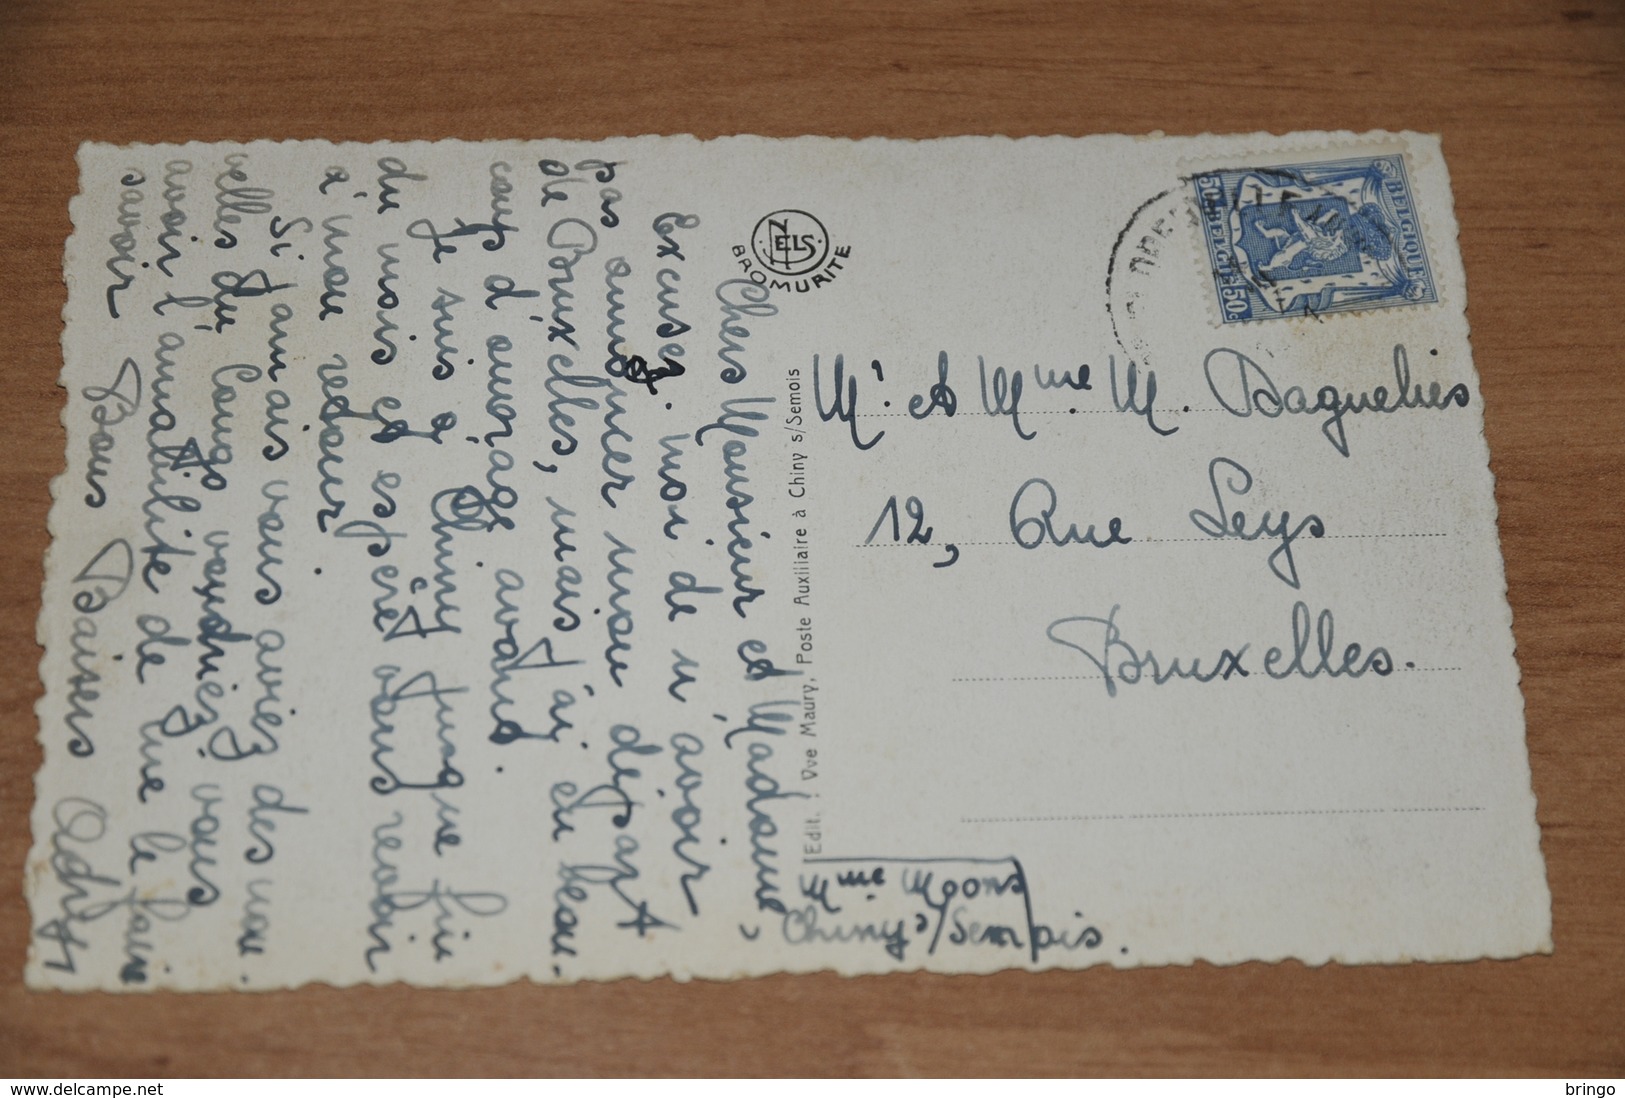 Chers Monsieur et Madame,
Excusez. moi de n'avoir
pas annoncer mon depart
de Bruxelles, mais j'ai eu beau-
coup d'ouvrage avant.
Je suis à Chiny jusque fin
du mois et espère vous revoir
à mon retour.
Si jamais vous aviez des nou-
velles du Congo voudriez vous
avoir l'amabilité de me le faire
savoir Bons Baisers
NELS
BROMURITE
Edit. : Vve Maury, Poste Auxiliaire à Chiny s/Semois
BELGIQUE
BELGIE
50c
50c
Mr et Mme M.
12, Rue Leys
Bruxelles.
Mme Moons
Chiny s/Semois.
delcampe.net
bringo